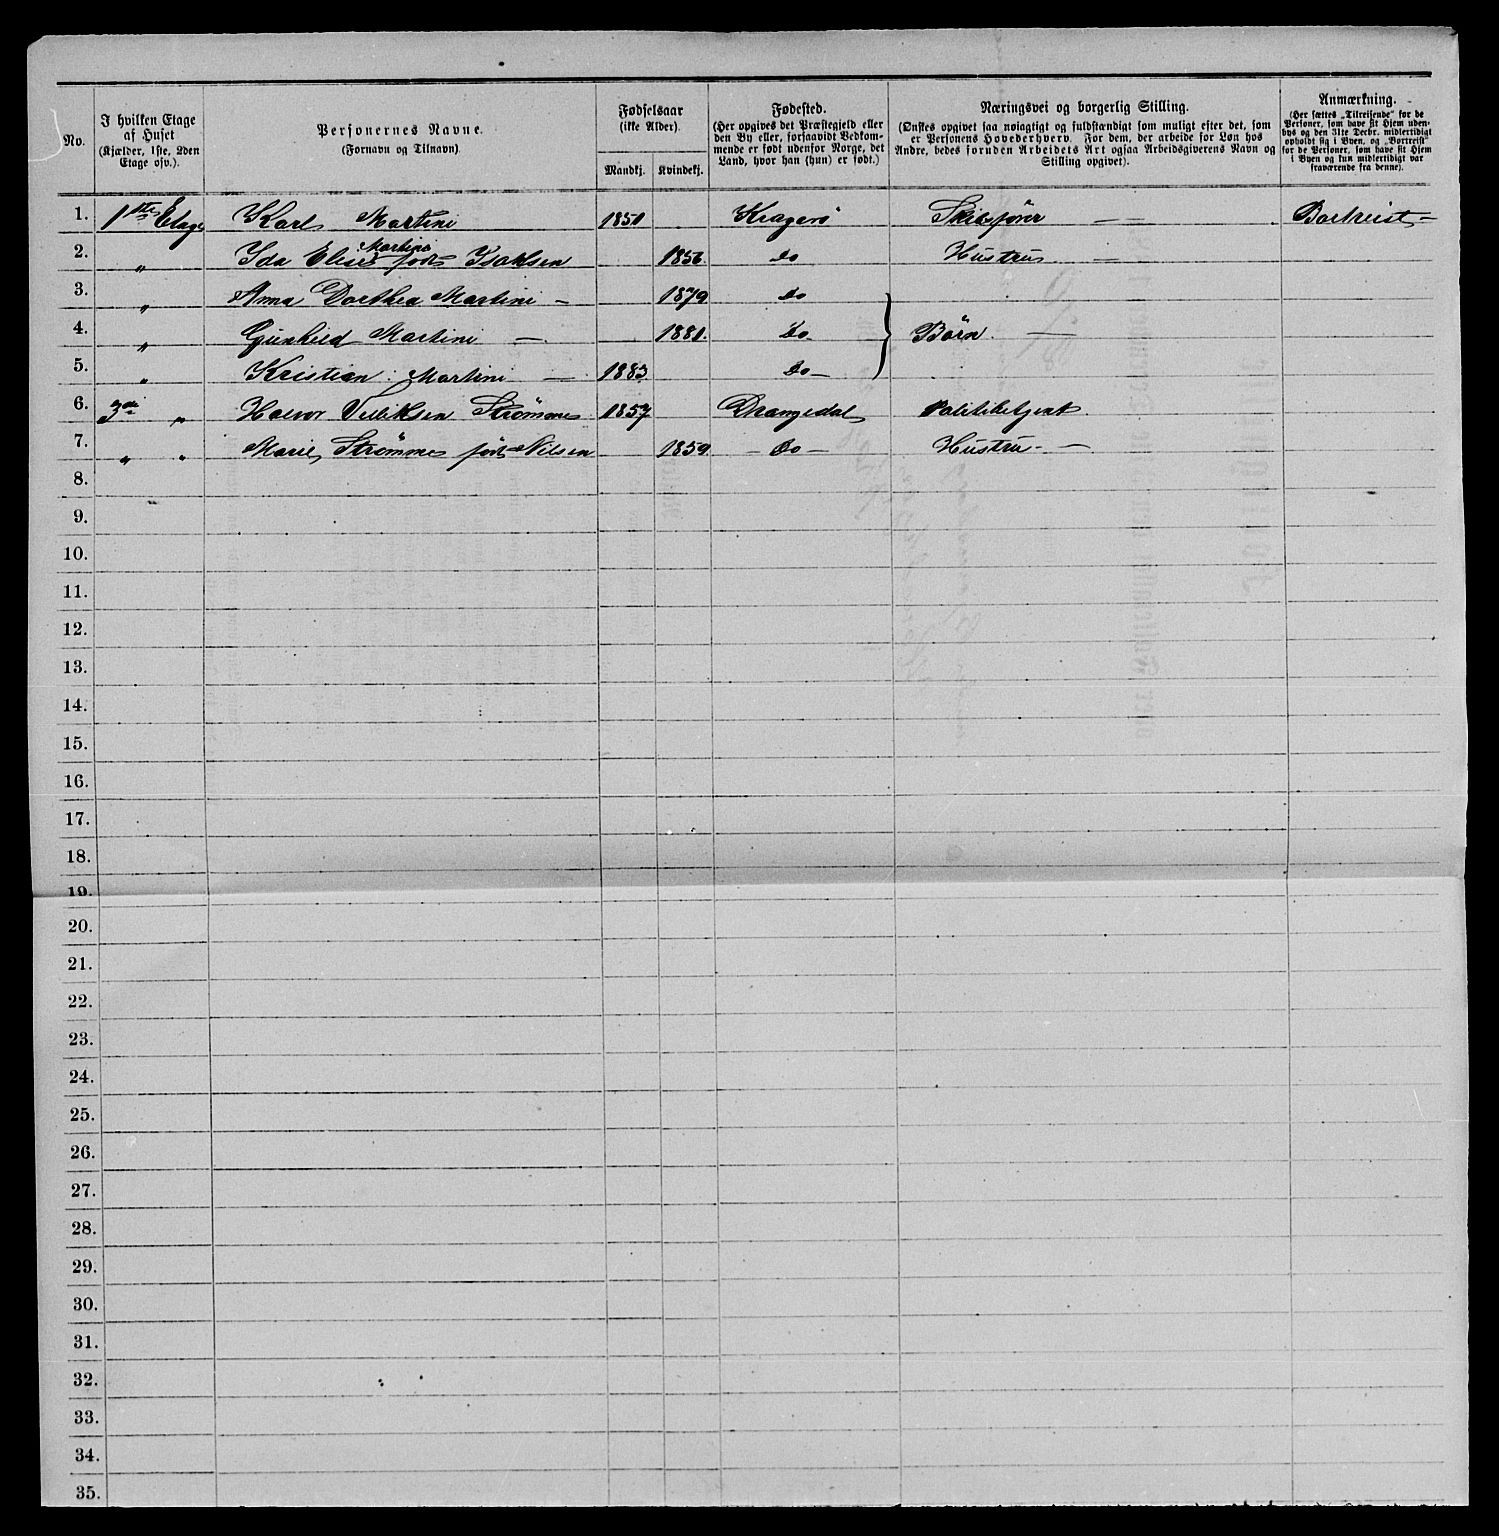 No.
I hvilken Etage
af Huset
(Kjælder, 1ste, 2den
Etage osv.).
Personernes Navne.
(Fornavn og Tilnavn).
Fødselsaar
(ikke Alder).
Mandkj. Kvindekj.
Fødested.
(Her opgives det Præstegjeld eller
den By eller, forsaavidt Vedkom-
mende er født udenfor Norge, det
Land, hvor han (hun) er født.)
Næringsvei og borgerlig Stilling.
(Ønskes opgivet saa nøiagtigt og fuldstændigt som muligt efter det, som
er Personens Hovederhverv. For dem, der arbeide for Løn hos
Andre, bedes foruden Arbeidets Art ogsaa Arbeidsgiverens Navn og
Stilling opgivet).
Anmærkning.
(Her sættes „Tilreisende“ for de
Personer, som have sit Hjem uden-
bys og den 31te Decbr. midlertidigt
opholdt sig i Byen, og „Bortreist“
for de Personer, som have sit Hjem
i Byen og kun midlertidigt var
fraværende fra denne).
1. 1ste Etage Karl Martini 1851 Kragerö Skibsförer — Bortreist —
2. „ Ida Elise Martini födt Isaksen 1856. do Hustru —
3. „ Anna Dorthea Martini — 1879 do
4. „ Gunhild Martini — 1881. do Börn. —
5. „ Kristian Martini — 1883 do —
6. 3die „ Halvor Strömme 1857 Drangedal Politibetjent
7. „ „ Marie Strömme födt Nilsen 1859. — do — Hustru —
8.
9.
10.
11.
12.
13.
14.
15.
16.
17.
18.
19.
20.
21.
22.
23.
24.
25.
26.
27.
28.
29.
30.
31.
32.
33.
34.
35.